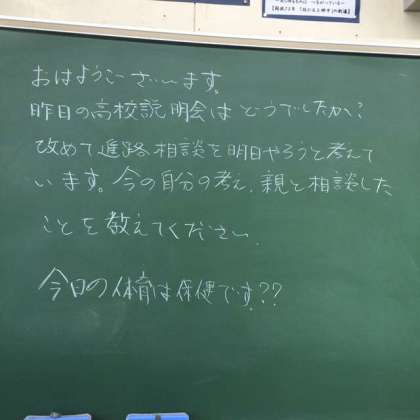 おはようございます。
昨日の高校説明会はどうでしたか?
改めて進路相談を明日やろうと考えて
います。今の自分の考え、親と相談した
ことを教えてください。
今日の体育は保健です??